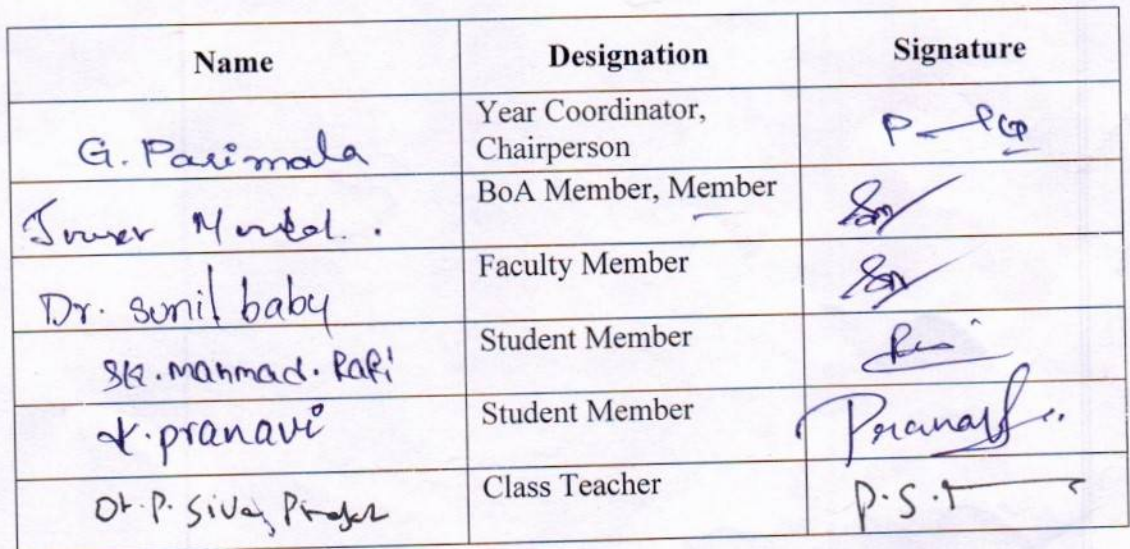 Name Designation Signature
G. Parimala Year Coordinator,
Chairperson
BoA Member, Member
Dr. sunil baby Faculty Member
SK. mahmad. Rafi Student Member
K. pranavi Student Member Pranavi
Dr. P. Siva Class Teacher P.S.